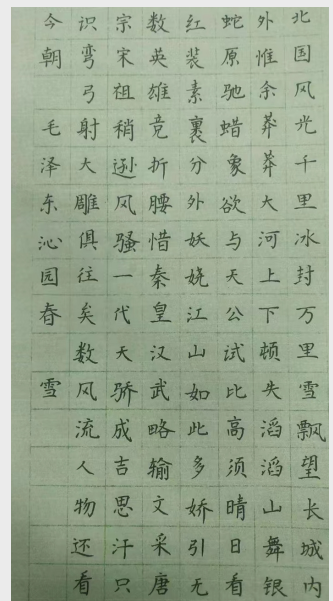 北国风光千里冰封万里雪飘望长城内
外惟余莽莽大河上下顿失滔滔山舞银
蛇原驰蜡象欲与天公试比高须晴日看
红装素裹分外妖娆江山如此多娇引无
数英雄竞折腰惜秦皇汉武略输文采唐
宗宋祖稍逊风骚一代天骄成吉思汗只
识弯弓射大雕俱往矣数风流人物还看
今朝 毛泽东沁园春 雪